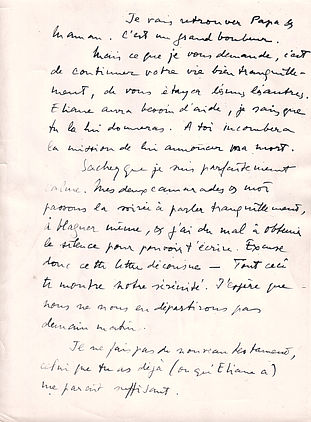 Je vais retrouver Papa &
Maman. C'est un grand bonheur.
Mais ce que je vous demande, c'est
de continuer votre vie bien tranquille-
ment, de vous étayer les uns les autres.
Eliane aura besoin d'aide, je sais que
tu la lui donneras. A toi incombera
la mission de lui annoncer ma mort.
Sachez que je suis parfaitement
calme. Mes deux camarades & moi
passons la soirée à parler tranquillement,
à blaguer même, & j'ai du mal à obtenir
le silence pour pouvoir t'écrire. Excuse
donc cette lettre décousue — Tout cela
te montre notre sérénité. J'espère que
nous ne nous en départirons pas
demain matin.
Je ne fais pas de nouveau testament,
celui que tu as déjà (ou qu'Eliane a)
me paraît suffisant.